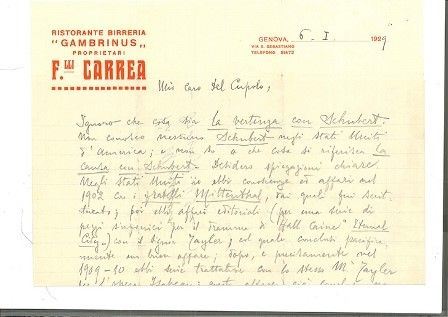 RISTORANTE BIRRERIA
"GAMBRINUS"
PROPRIETARI
F.lli CARREA
GENOVA, 6-I- 1929
VIA S. SEBASTIANO
TELEFONO
Mio caro Del Cupolo,
Ignoro che cosa sia la vertenza con Schubert.
Non conosco nessuno Schubert negli Stati Uniti
d'America; e non so a che cosa si riferisca la
causa con Schubert. Desidero spiegazioni chiare.
Negli Stati Uniti io ebbi conoscenze ed affari nel
1902 coi fratelli Mittenthal, dai quali fui
poi ebbi affari editoriali (per una serie di
pezzi sinfonici per il dramma di Hall Caine: Eternal
City) con il signor Tayler, col quale conclusi pacifica
mente un buon affare; dopo, e precisamente nel
1909-10 ebbi serie trattative con lo stesso Mr Tayler